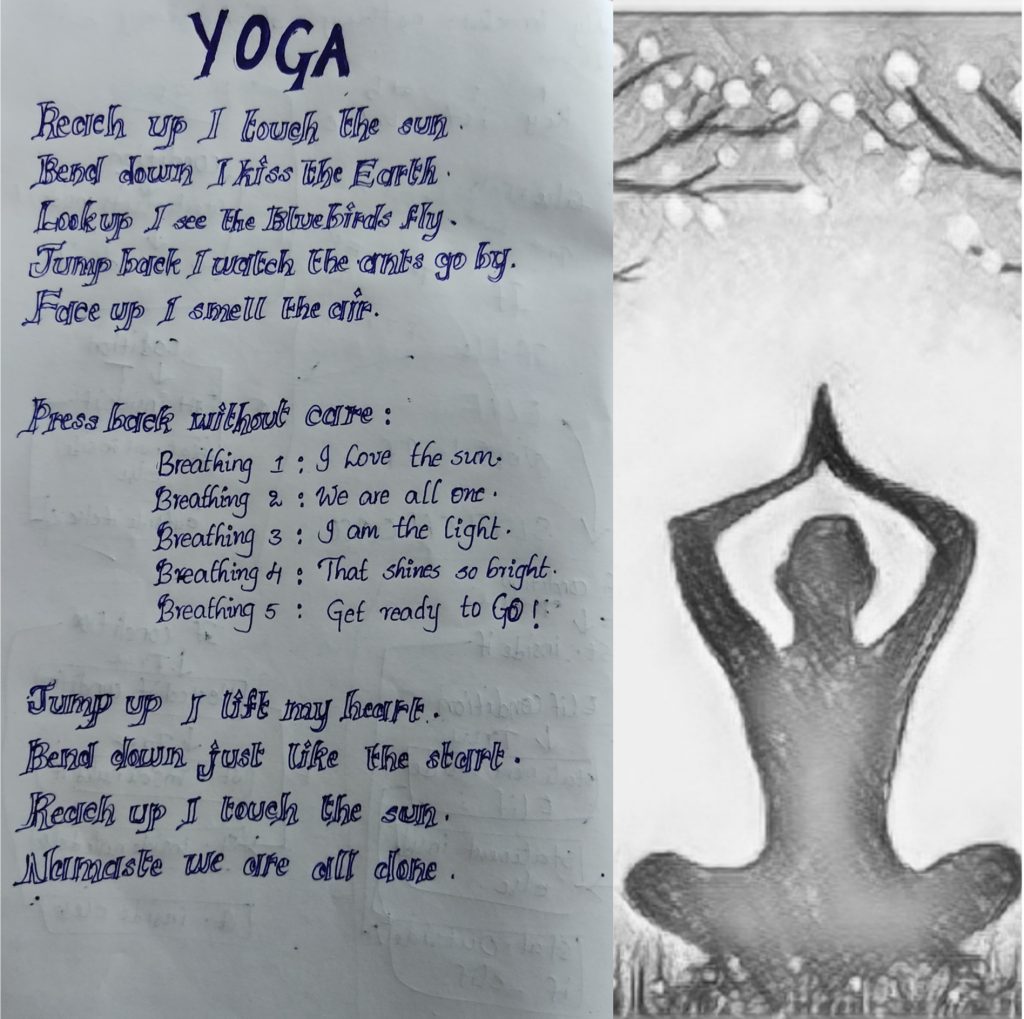 YOGA
Reach up I touch the sun.
Bend down I kiss the Earth.
Look up I see the Bluebirds fly.
Jump back I watch the ants go by.
Face up I smell the air.
Press back without care:
Breathing 1 : I Love the sun.
Breathing 2 : We are all one.
Breathing 3 : I am the light.
Breathing 4 : That shines so bright.
Breathing 5 : Get ready to GO!
Jump up I lift my heart.
Bend down just like the start.
Reach up I touch the sun.
Namaste we are all done.